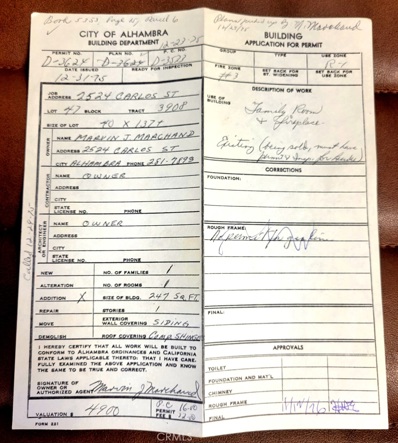 Book 5353 Page 157 Parcel 6
CITY OF ALHAMBRA
BUILDING DEPARTMENT 12-22-75
PERMIT NO. PLAN NO. P.C. NO.
D-3624 D-3624 D-3521
DATE ISSUED READY FOR INSPECTION
12-31-75
JOB ADDRESS 2524 CARLOS ST
LOT 47 BLOCK TRACT 3908
SIZE OF LOT 40 X 137+
OWNER
NAME MARVIN J. MARCHAND
ADDRESS 2524 CARLOS ST
CITY ALHAMBRA PHONE 281-7899
CONTRACTOR
NAME OWNER
ADDRESS
CITY
STATE LICENSE NO. PHONE
ARCHITECT OR ENGINEER
NAME OWNER
ADDRESS
CITY
STATE LICENSE NO. PHONE
NEW NO. OF FAMILIES 1
ALTERATION NO. OF ROOMS 1
ADDITION X SIZE OF BLDG. 247 SQ. FT.
REPAIR STORIES 1
MOVE EXTERIOR WALL COVERING SIDING
DEMOLISH ROOF COVERING COMP SHINGLE
I HEREBY CERTIFY THAT ALL WORK WILL BE BUILT TO
CONFORM TO ALHAMBRA ORDINANCES AND CALIFORNIA
STATE LAWS APPLICABLE THERETO: THAT I HAVE CARE-
FULLY EXAMINED THE ABOVE APPLICATION AND KNOW
THE SAME TO BE TRUE AND CORRECT.
SIGNATURE OF OWNER OR AUTHORIZED AGENT Marvin J Marchand
VALUATION $ 4900 P.C. 16.00
PERMIT FEE $
FORM 221
M. Marchand
BUILDING
APPLICATION FOR PERMIT
GROUP TYPE USE ZONE
R-1
FIRE ZONE SET BACK FOR ST. WIDENING SET BACK FOR USE ZONE
#3
DESCRIPTION OF WORK
USE OF BUILDING Family Room
& Fireplace
Existing (being sold) must have
permit & Insp. for
CORRECTIONS
FOUNDATION:
ROUGH FRAME:
FINAL:
APPROVALS
TOILET
FOUNDATION AND MAT'L
CHIMNEY
ROUGH FRAME
FINAL
CRMLS